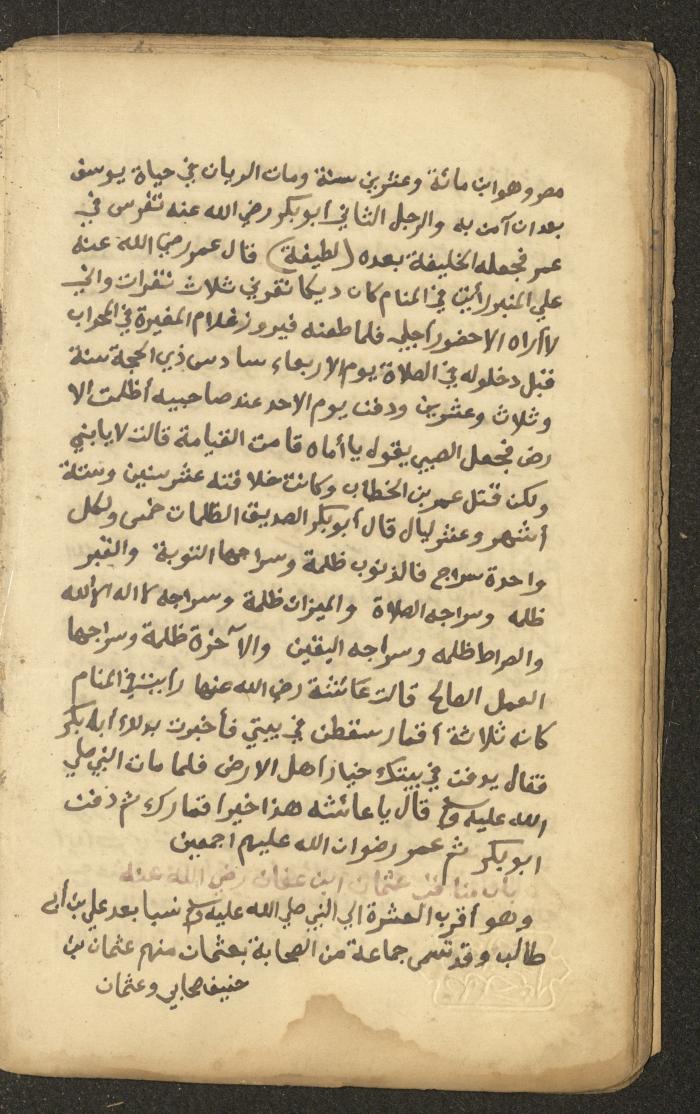 مصر وهو ابن مائة وعشرين سنة ومات الريان في حياة يوسف
بعد ان آمن به والرجل الثاني أبو بكر رضي الله عنه تفرس في
عمر فجعله الخليفة بعده (لطيفة) قال عمر رضي الله عنه
علي المنبر رأيت في المنام كان ديكا نقرني ثلاث نقرات واني
لا أراه الا حضور أجلي فلما طعنه فيروز غلام المغيرة في المحراب
قبل دخوله في الصلاة يوم الاربعاء سادس ذي الحجة سنة
وثلاث وعشرين ودفن يوم الاحد عند صاحبيه أظلمت الا
رض فجعل الصبي يقول يا أماه قامت القيامة قالت لا يا بني
ولكن قتل عمر بن الخطاب وكانت خلافته عشر سنين وستة
أشهر وعشر ليال قال أبو بكر الصديق الظلمات خمس ولكل
واحدة سراج فالذنوب ظلمة وسراجها التوبة والقبر
ظلمه وسراجه الصلاة والميزان ظلمة وسراجه لا اله الا الله
والصراط ظلمه وسراجه اليقين والآخرة ظلمة وسراجها
العمل الصالح قالت عائشة رضي الله عنها رأيت في المنام
كانه ثلاثة أقمار سقطن في بيتي فأخبرت بذلك أبا بكر
فقال يدفن في بيتك خيار أهل الارض فلما مات النبي صلي
الله عليه وسلم قال يا عائشه هذا خير اقمارك ثم دفن
ابو بكر ثم عمر رضوان الله عليهم اجمعين
باب مناقب عثمان ابن عفان رضي الله عنه
وهو أقرب العشرة الي النبي صلي الله عليه وسلم نسبا بعد علي بن أبي
طالب وقد تسمى جماعة من الصحابة بعثمان منهم عثمان بن
حنيف صحابي وعثمان